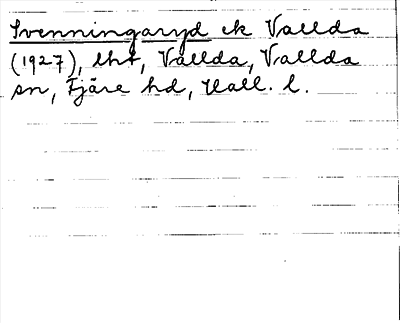 Svenningaryd ek Vallda
(1927), lht, Vallda, Vallda
sn, Fjäre hd, Hall. l.